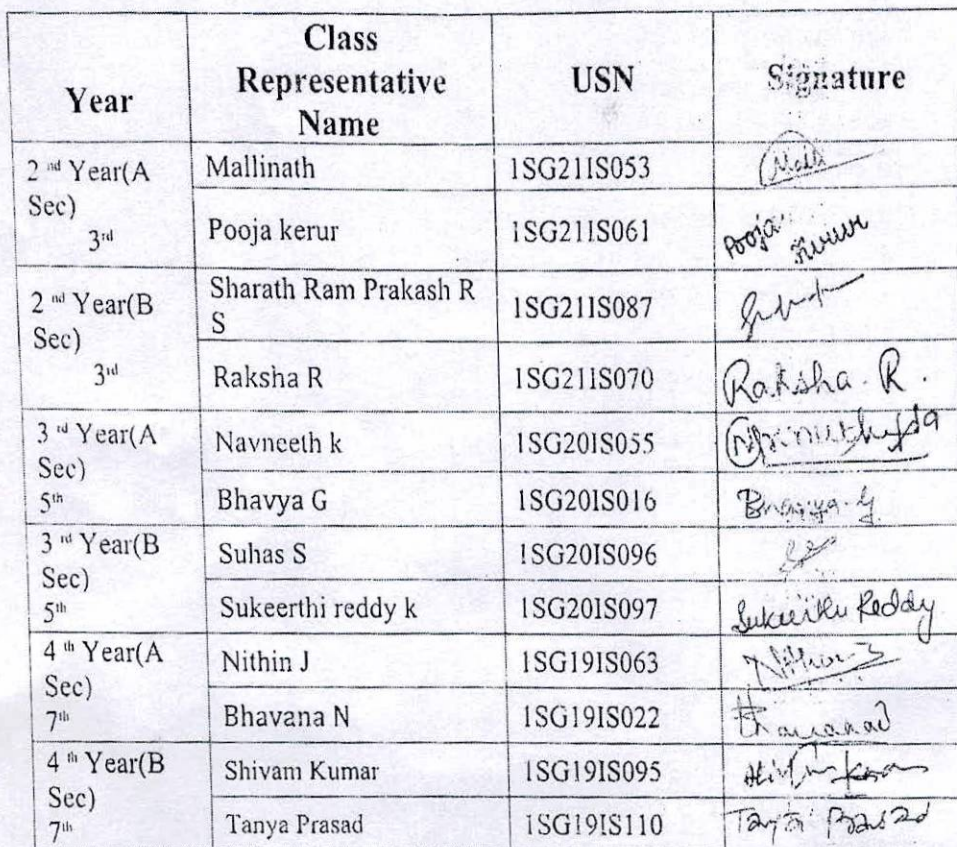 Year Class Representative Name USN Signature
2 nd Year(A Sec) 3rd Mallinath 1SG21IS053 Malli
Pooja kerur 1SG21IS061 Pooja kerur
2 nd Year(B Sec) 3rd Sharath Ram Prakash R S 1SG21IS087
Raksha R 1SG21IS070 Raksha. R.
3 rd Year(A Sec) 5th Navneeth k 1SG20IS055
Bhavya G 1SG20IS016 Bhavya G
3 rd Year(B Sec) 5th Suhas S 1SG20IS096
Sukeerthi reddy k 1SG20IS097 Sukeerthi Reddy
4 th Year(A Sec) 7th Nithin J 1SG19IS063
Bhavana N 1SG19IS022
4 th Year(B Sec) 7th Shivam Kumar 1SG19IS095
Tanya Prasad 1SG19IS110 Tanya Prasad